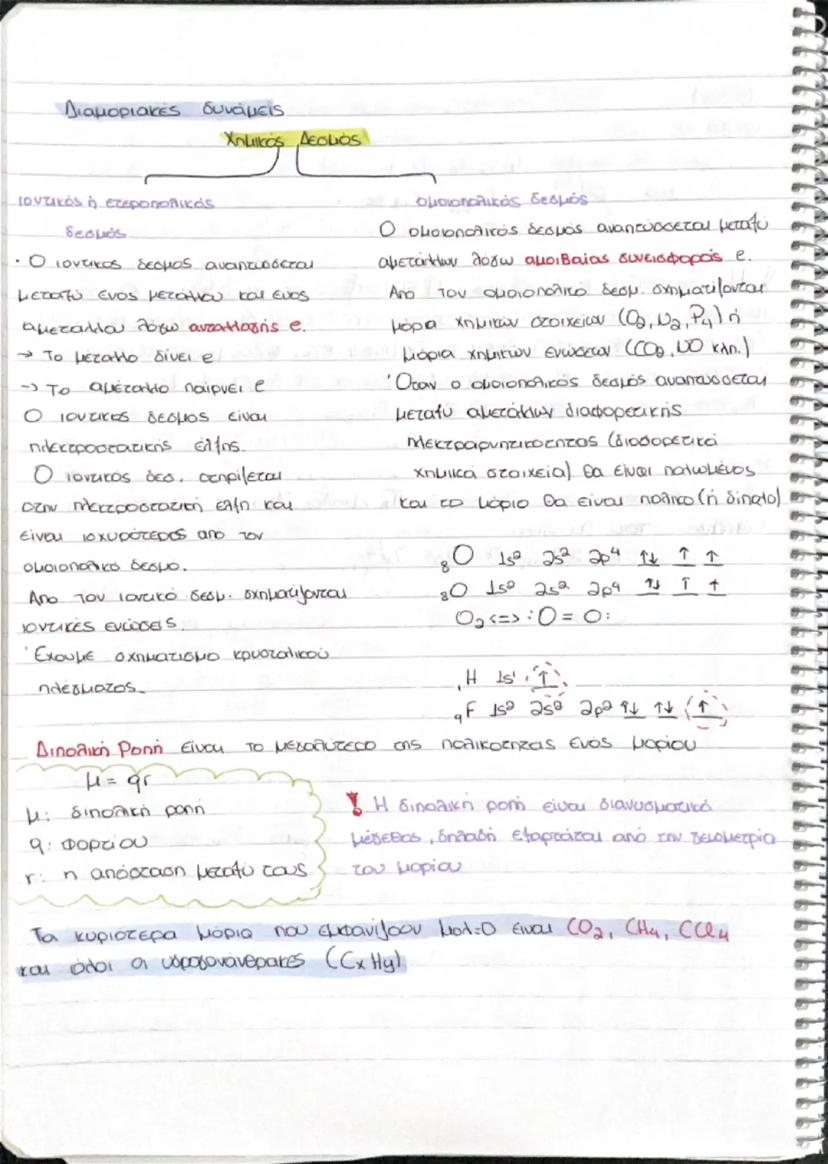 Διαμοριακές δυνάμεις
Χημικός Δεσμός
ιοντικός ή ετεροπολικός
δεσμός
· Ο ιοντικός δεσμός αναπτύσσεται
μεταξύ ενός μετάλλου και ενός
αμετάλλου λόγω ανταλλαγής e.
→ Το μέταλλο δίνει e
→ Το αμέταλλο παίρνει e
Ο ιοντικός δεσμός είναι
ηλεκτροστατικής έλξης.
Ο ιοντικός δεσ. στηρίζεται
στην ηλεκτροστατική έλξη και
είναι ισχυρότερος από τον
ομοιοπολικό δεσμο.
Απο τον ιοντικό δεσμ. σχηματίζονται
ιοντικές ενώσεις.
Έχουμε σχηματισμο κρυσταλικού
πλέγματος.
ομοιοπολικός δεσμός
Ο ομοιοπολικός δεσμός αναπτύσσεται μεταξύ
αμετάλλων λόγω αμοιβαίας συνεισφοράς e.
Απο τον ομοιοπολικό δεσμ. σχηματίζονται
μόρια χημικών στοιχείων (O₂, N₂, P₄) ή
μόρια χημικών ενώσεων (CO₂, NO κλπ.)
Όταν ο ομοιοπολικός δεσμός αναπτύσσεται
μεταξύ αμετάλλων διαφορετικής
ηλεκτραρνητικότητας (διαφορετικά
χημικά στοιχεία) θα είναι πολωμένος
και το μόριο θα είναι πολικό (ή δίπολο)
₈O 1s² 2s² 2p⁴ ↑↓ ↑ ↑
₈O 1s² 2s² 2p⁴ ↑↓ ↑ ↑
O₂ <=> :O = O:
₁H 1s¹ ↑
₉F 1s² 2s² 2p² ↑↓ ↑↓ ↑
Διπολική Ροπή είναι το μεγαλύτερο της πολικότητας ενός μορίου
μ = qr
μ: διπολική ροπή
q: φορτίου
r: η απόσταση μεταξύ τους
! Η διπολική ροπή είναι διανυσματικό
μέγεθος, δηλαδή εξαρτάται από την γεωμετρία
του μορίου
Τα κυριότερα μόρια που εμφανίζουν μολ=0 είναι CO₂, CH₄, CCl₄
και όλοι οι υδρογονάνθρακες (CxHy)